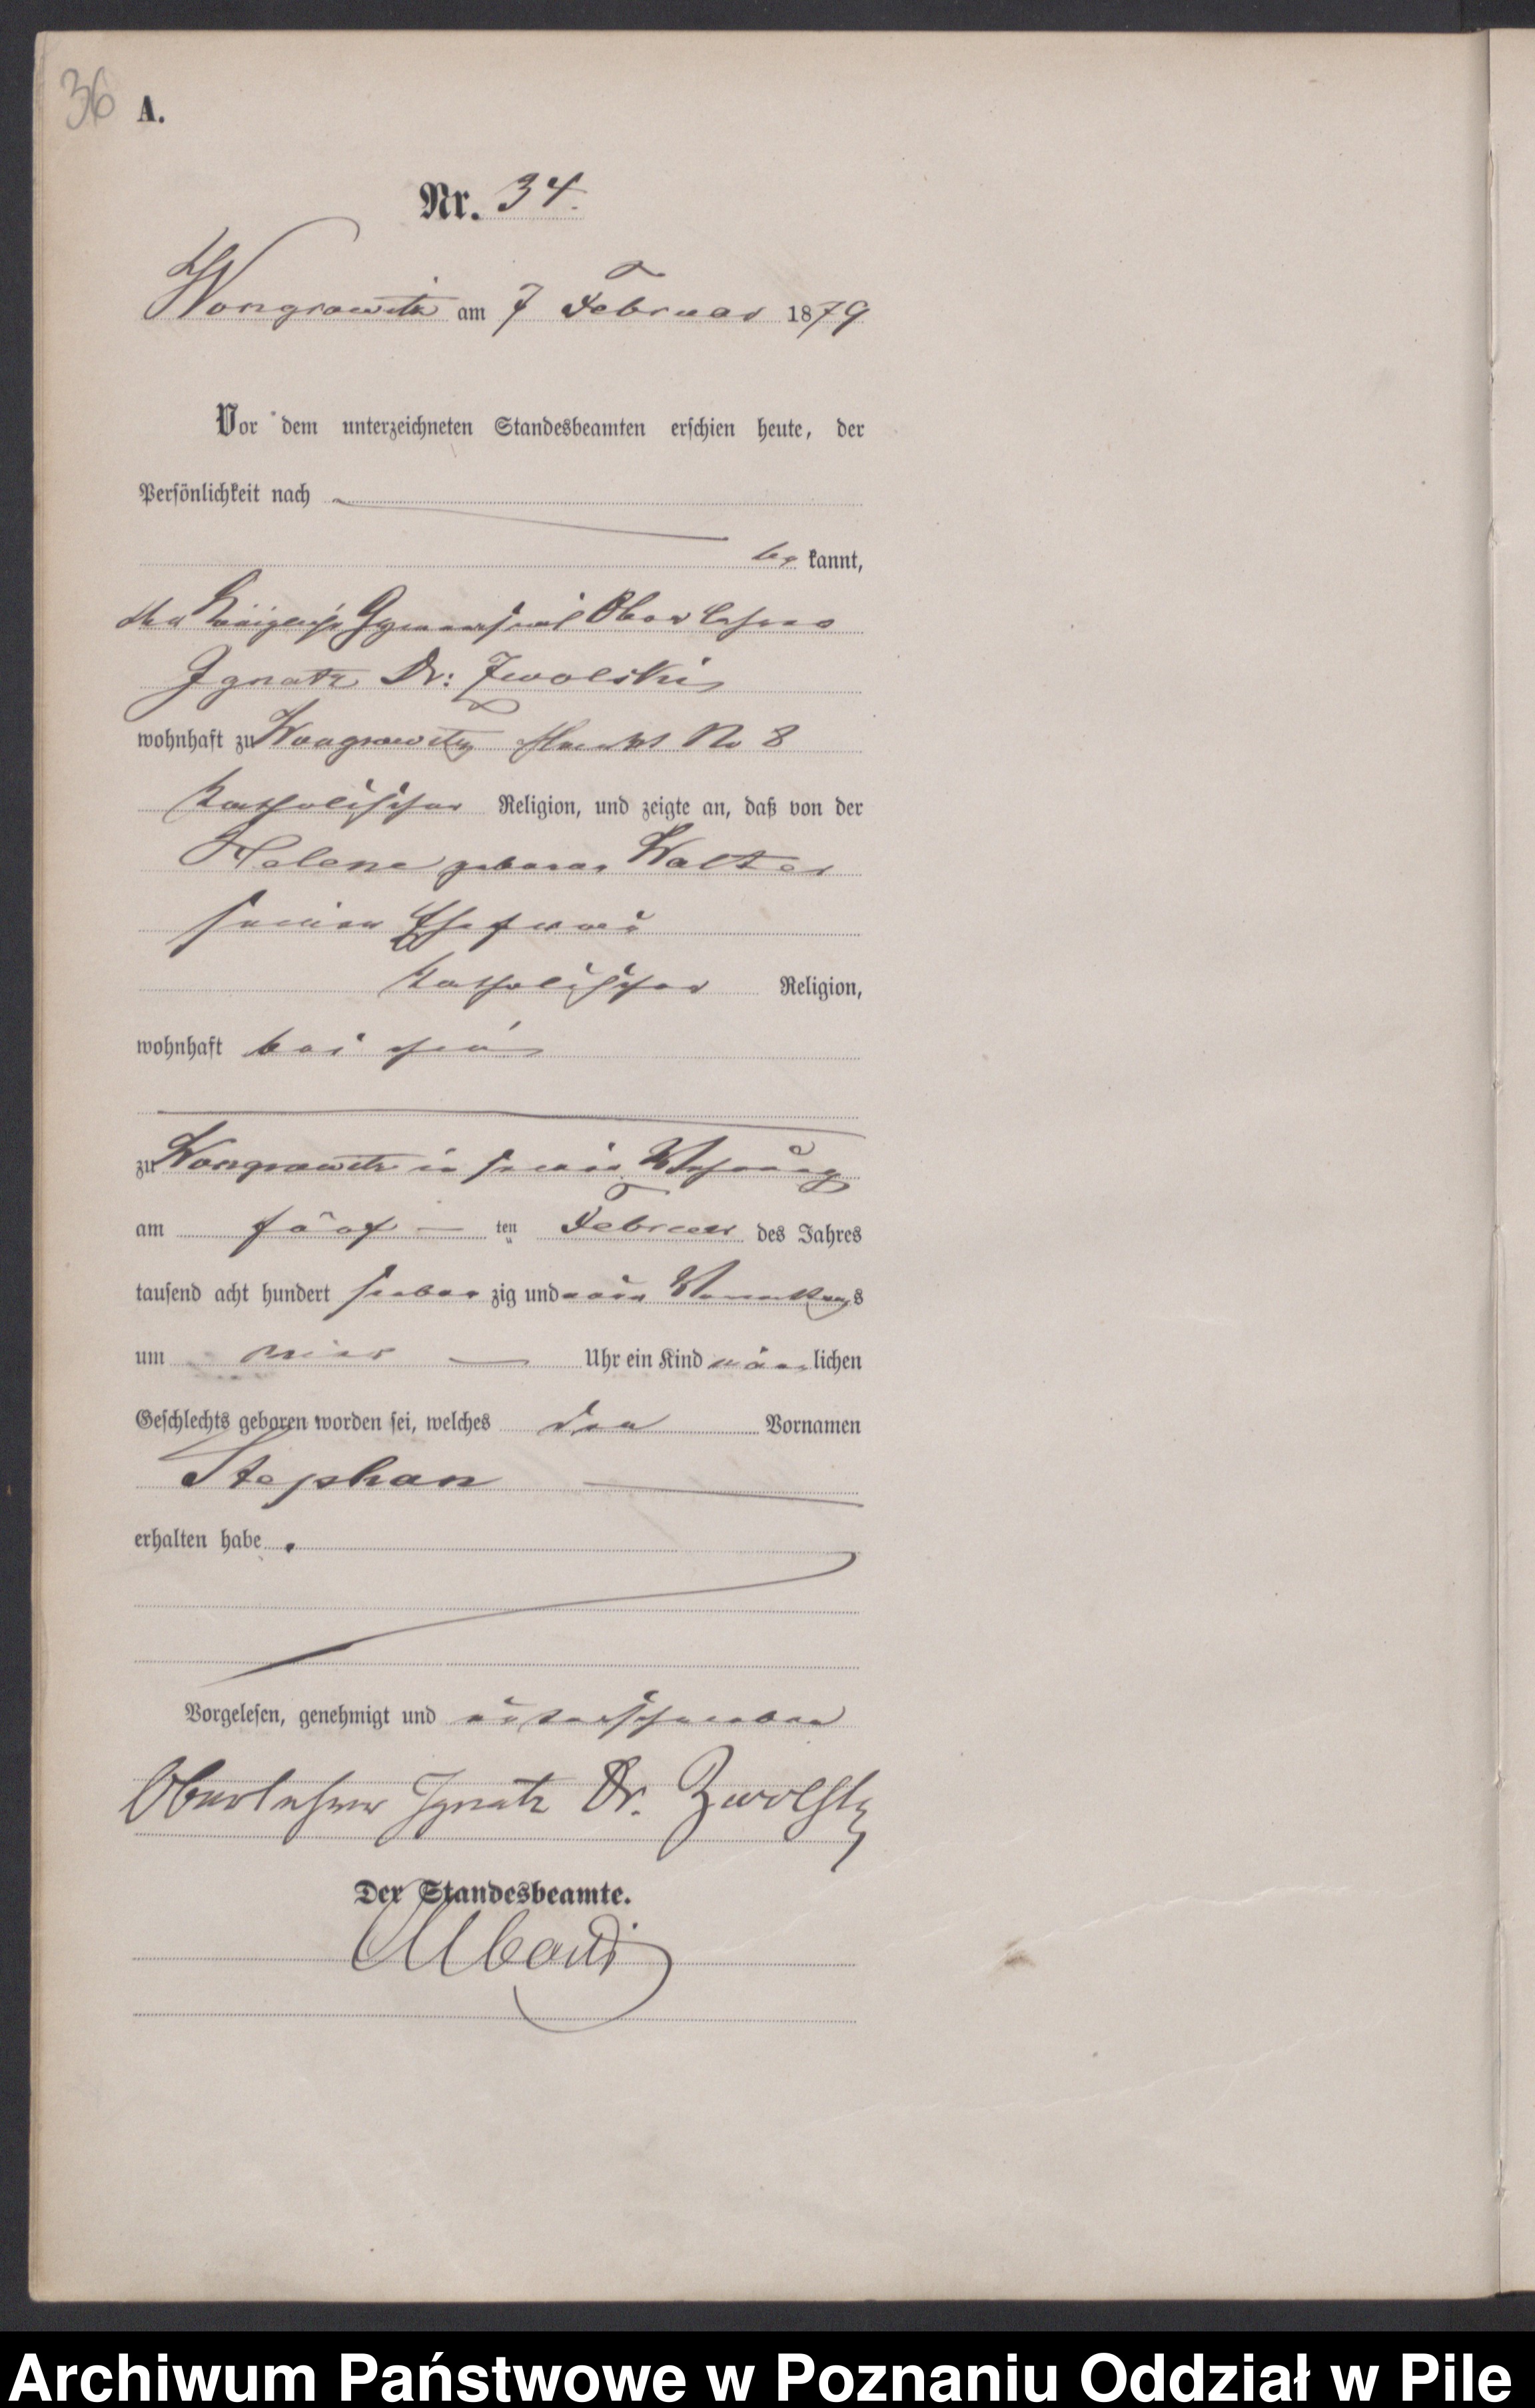 36 A.
Nr. 34.
Wongrowitz am 7 Februar 1879
Vor dem unterzeichneten Standesbeamten erschien heute, der
Persönlichkeit nach
be kannt,
der Königliche Gymnasial Oberlehrer
Ignatz Dr: Zwolski
wohnhaft zu Wongrowitz Markt No 8
katholischer Religion, und zeigte an, daß von der
Helene geborene Walter
seiner Ehefrau
katholischer Religion,
wohnhaft bei ihm
zu Wongrowitz in seiner Wohnung
am fünf ten Februar des Jahres
tausend acht hundert sieben zig und neun Vormittags
um Uhr ein Kind männlichen
Geschlechts geboren worden sei, welches den Vornamen
Stephan
erhalten habe.
Vorgelesen, genehmigt und unterschrieben
Oberlehrer Ignatz Dr. Zwolski
Der Standesbeamte.
Archiwum Państwowe w Poznaniu Oddział w Pile